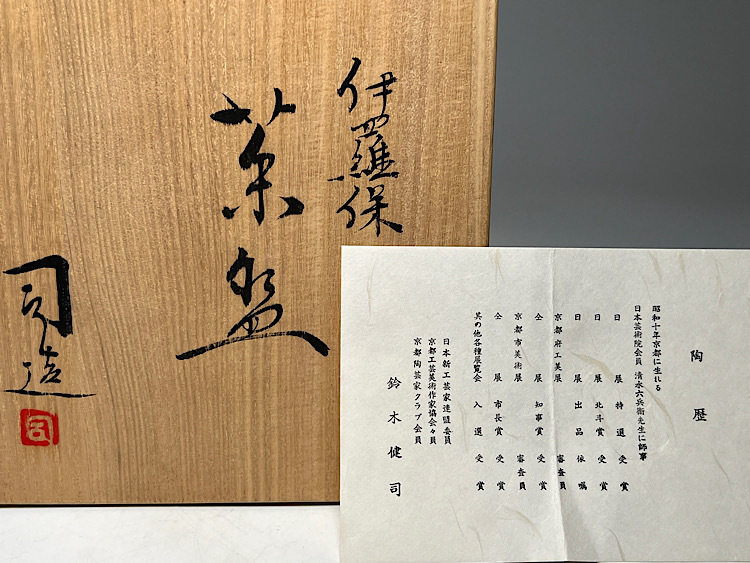 伊羅保
菓盌
司造
司
陶歴
昭和十年京都に生れる
日本芸術院会員 清水六兵衛先生に師事
日展 特選受賞
日展 北斗賞受賞
日展 出品依嘱
京都府工美展 審査員
仝展 知事賞受賞
京都市美術展 審査員
仝展 市長賞受賞
其の他各種展覧会 入選受賞
日本新工芸家連盟委員
京都工芸美術作家協会々員
京都陶芸家クラブ会員
鈴木健司